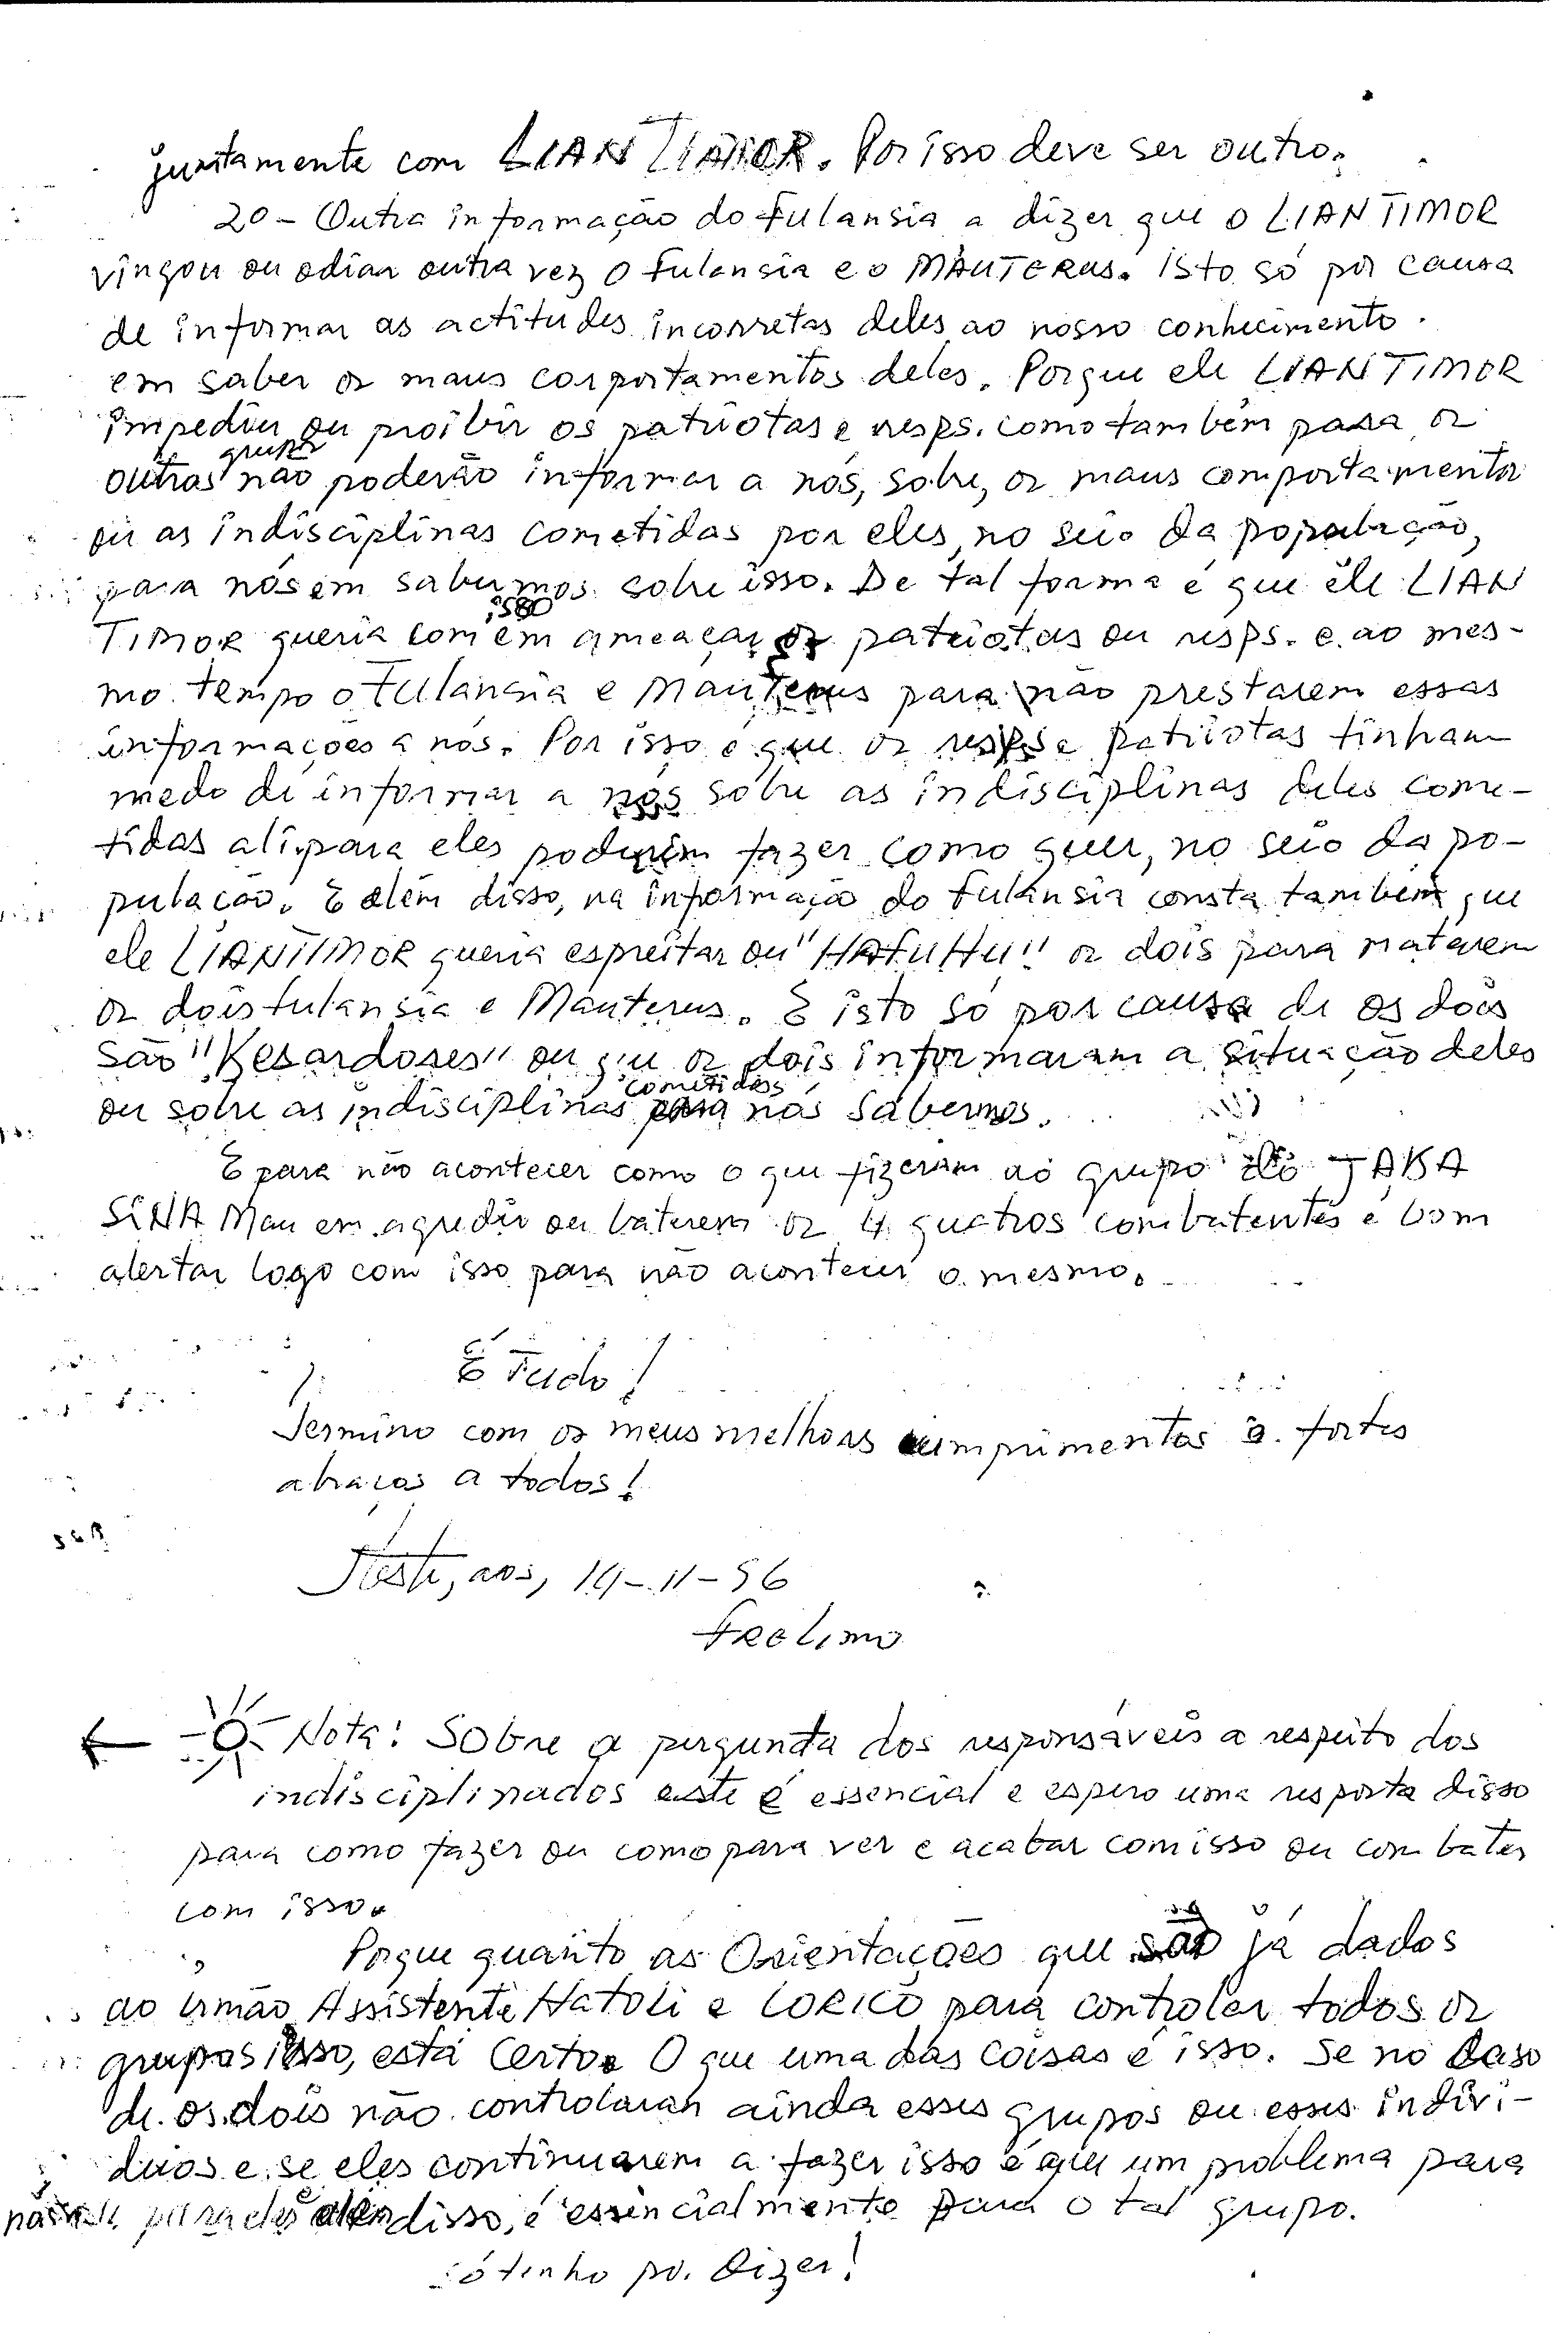 juntamente com LIAN TIMOR. Por isso deve ser outro.
2º - Outra informação do Fulansia a dizer que o LIANTIMOR
vingou ou odiar outra vez o Fulansia e o MAUTERUS. Isto só por causa
de informar as actitudes incorretas deles ao nosso conhecimento.
em saber os maus corportamentos deles. Porque ele LIANTIMOR
impediu ou proibir os patriotas e resps. como também para os
outros grupos não poderão informar a nós, sobre, os maus comportamentos
ou as indisciplinas cometidas por eles, no seio da população,
para nós em sabermos sobre isso. De tal forma é que ele LIAN
TIMOR queria com isso em ameaçar os patriotas ou resps. e ao mes-
mo tempo o Fulansia e Mauterus para não prestarem essas
informações a nós. Por isso é que os resps e patriotas tinham
medo de informar a nós sobre as indisciplinas deles come-
tidas ali para eles poderem fazer como quer, no seio da po-
pulação. E além disso, na informação do Fulansia consta também que
ele LIANTIMOR queria espreitar ou "HAFUHU" os dois para matarem
os dois Fulansia e Mauterus. E isto só por causa de os dois
são "Kesardoses" ou que os dois informaram a situação deles
ou sobre as indisciplinas cometidas para nós sabermos.
E para não acontecer como o que fizeram ao grupo do TAKA
SINA Mau em agredir ou baterem os 4 quatros combatentes é bom
alertar logo com isso para não acontecer o mesmo.
É Tudo!
Termino com os meus melhores cumprimentos e fortes
abraços a todos!
aos, 14-11-96
Frelimo
Nota: Sobre a pergunta dos responsáveis a respeito dos
indisciplinados este é essencial e espero uma resposta disso
para como fazer ou como para ver e acabar com isso ou combater
com isso.
Porque quanto as Orientações que são já dados
ao irmão Assistente HATOLI e LORICO para controlar todos os
grupos isso, está Certo. O que uma das coisas é isso. Se no caso
de os dois não controlaram ainda esses grupos ou esses indiví-
duos e se eles continuarem a fazer isso é que um problema para
nós para eles além disso, é essencialmente para o tal grupo.
Só tenho po. Dizer!